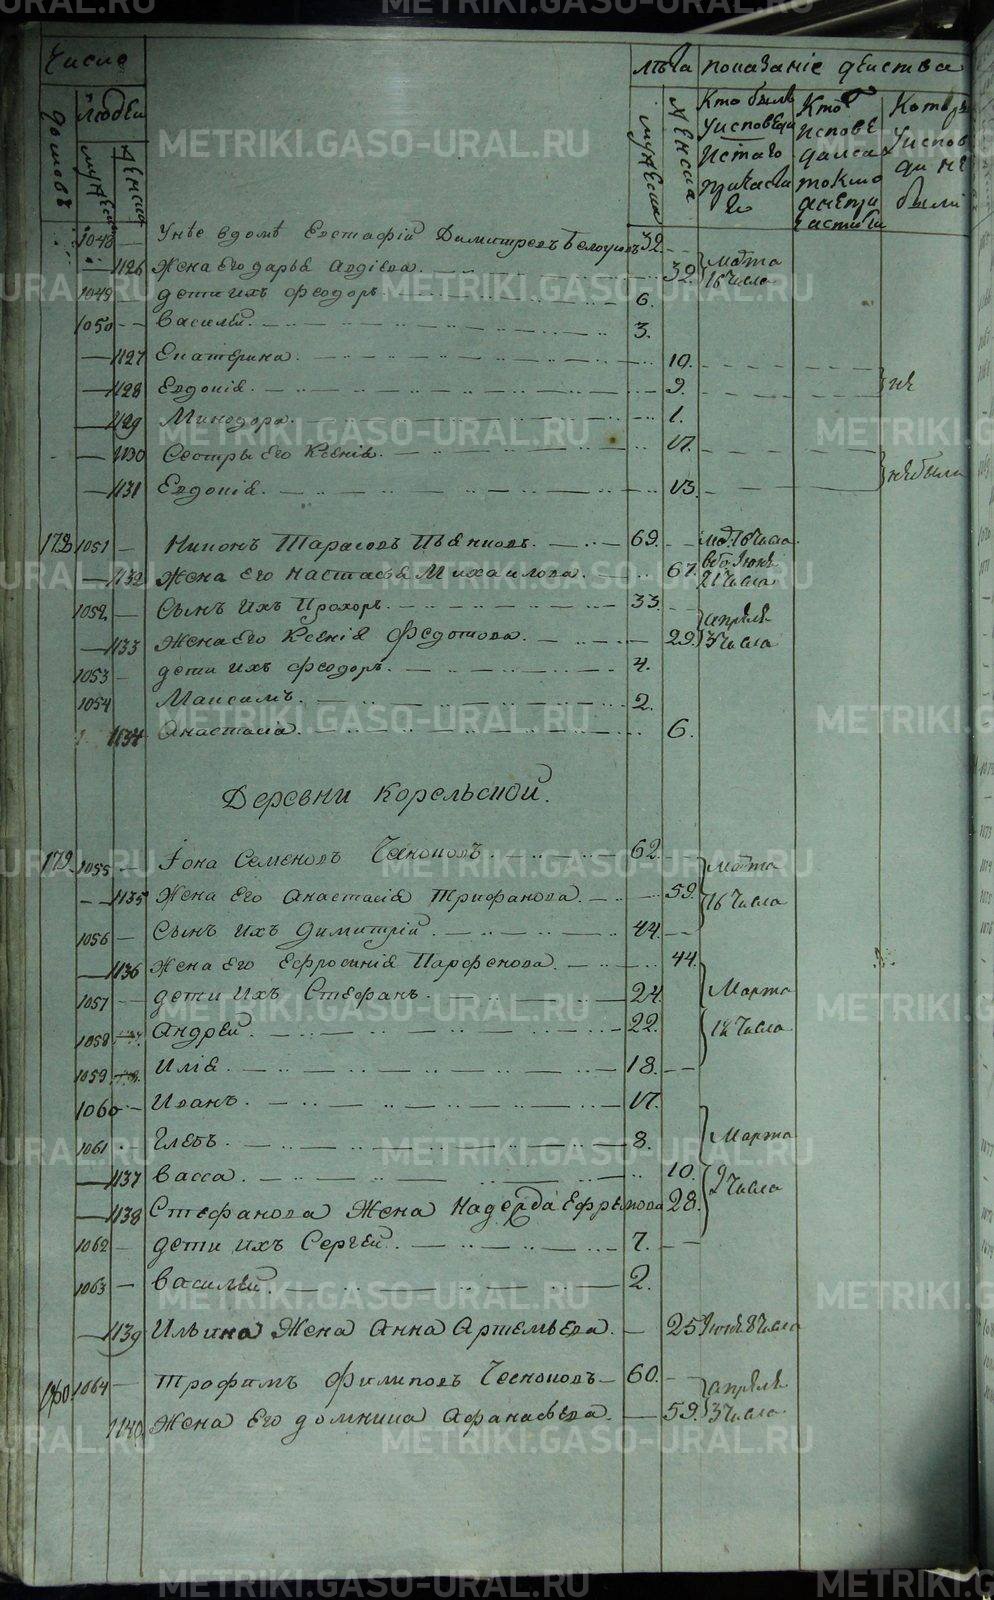 Число
лѣта показаніе действа
домовъ
людей
мужеска
женска
мужеска
женска
Кто былъ у исповеди и стаго причастия
Кто исповедался токмо а не причастился
Которые у исповеди не были
1048 — У нѣе в домѣ Евстафій Димитревъ 32.
1126 Жена его дарья Авдіева 32. Марта 16 числа
1049 дети ихъ Феодоръ 6.
1050 Василей 3.
1127 Екатерина 10.
1128 Евдокія 9. не
1129 Минодора 1.
1130 Сестры его Ксенія 17.
1131 Евдокія 13. не были
178 1051 Никонъ Тарасовъ Пьянковъ 69. мар. 16 числа
1132 Жена его Настасья Михаилова 67. Июня 21 числа
1052 Сынъ ихъ Прохоръ 33. апреля
1133 Жена его Ксенія Федотова 29. 3 числа
1053 дети ихъ Феодоръ 4.
1054 Максимъ 2.
1134 Анастасія 6.
Деревни Корельской.
179. 1055 Іона Семеновъ Чесноковъ 62. Марта
1135 Жена его Анастасія Трифанова 59. 16 числа
1056 Сынъ ихъ Димитрій 44.
1136 Жена его Ефросинія Парфенова 44.
1057 дети ихъ Стефанъ 24. Марта
1058 Андрей 22. 12 числа
1059 Илія 18.
1060 Иванъ 17.
1061 Глебъ 8. Марта
1137 Васса 10. 9 числа
1138 Стефанова Жена Надежда Ефремова 28.
1062 дети ихъ Сергей 7.
1063 Василей 2.
1139 Ильина Жена Анна Артемьева 25 Июня 8 числа
180. 1064 Трофимъ Филиповъ Чесноковъ 60. апреля
1140 Жена его домника Афанасьева 59. 3 числа
METRIKI.GASO-URAL.RU